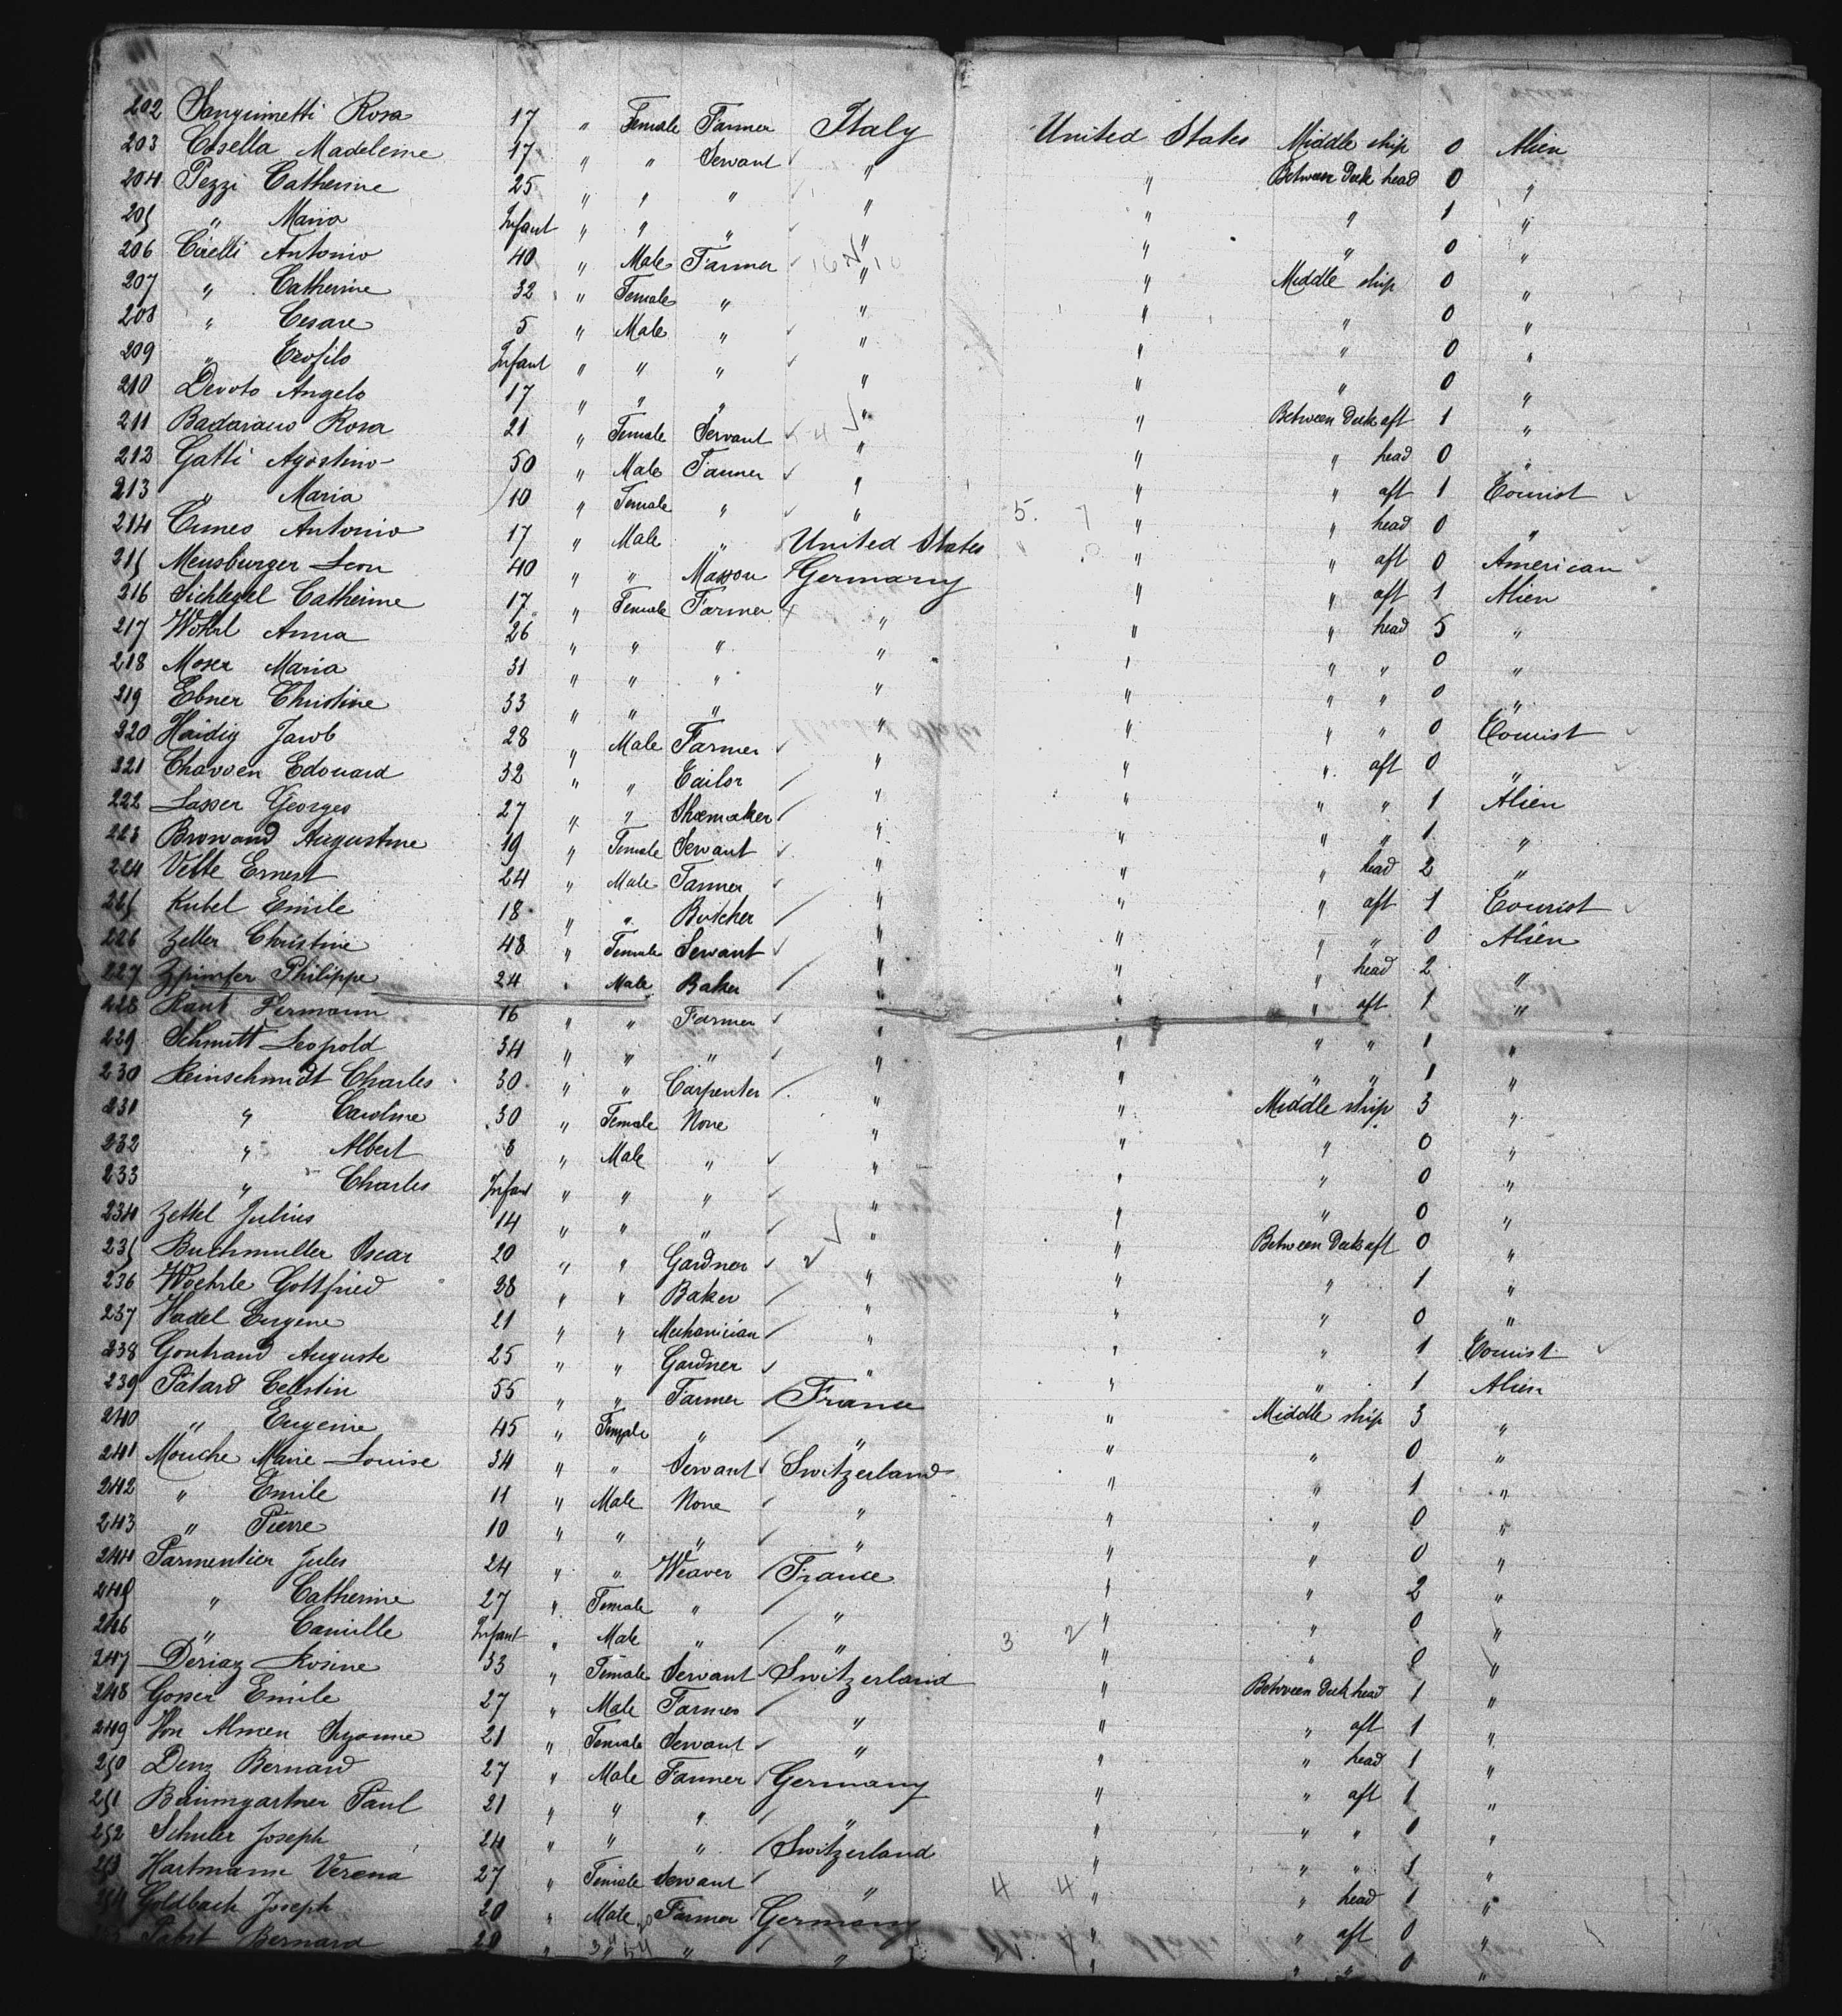 202 Sanguinetti Rosa 17 " Female Farmer Italy United States Middle ship 0 Alien
203 Casella Madeleine 17 " " Servant " " Between Deck head 0 "
204 Pezzi Catherine 25 " " " " " " 1 "
205 " Maria Infant " " " " " " 0 "
206 Cirelli Antonio 40 " Male Farmer " " Middle ship 0 "
207 " Catherine 32 " Female " " " " 0 "
208 " Cesare 5 " Male " " " " 0 "
209 " Infant " " " " " " 0 "
210 Devoto Angelo 17 " " " " " Between Deck aft 1 "
211 Badaracco Rosa 21 " Female Servant " " " head 0 "
212 Gatti Agostino 50 " Male Farmer " " " aft 1 Tourist
213 " Maria 10 " Female " " " " head 0 "
214 Cuneo Antonio 17 " Male " United States " " aft 0 American
215 Meusburger Leon 40 " " Masson Germany " " aft 1 Alien
216 Sichlegel Catherine 17 " Female Farmer " " " head 5 "
217 Wohrl Anna 26 " " " " " " " 0 "
218 Moser Maria 31 " " " " " " " 0 "
219 Ebner Christine 33 " " " " " " " 0 Tourist
220 Haidig Jacob 28 " Male Farmer " " " aft 0 "
221 Chavoen Edouard 32 " " Tailor " " " " 1 Alien
222 Lasser Georges 27 " " Shoemaker " " " " 1 "
223 Browand Augustine 19 " Female Servant " " " head 2 "
224 Velte Ernest 24 " Male Farmer " " " aft 1 Tourist
225 Kubel Emile 18 " " Butcher " " " " 0 Alien
226 Zeller Christine 48 " Female Servant " " " head 2 "
227 Philippe 24 " Male Baker " " " aft 1 "
228 Kant Hermann 16 " " Farmer " " " " 1 "
229 Schmitt Leopold 34 " " " " " " " 1 "
230 Reinschmidt Charles 30 " " Carpenter " " Middle ship 3 "
231 " Caroline 30 " Female None " " " 0 "
232 " Albert 3 " Male " " " " 0 "
233 " Charles Infant " " " " " " 0 "
234 Zettel Julius 14 " " " " " Between Deck aft 0 "
235 Buchmuller Oscar 20 " " Gardner " " " 1 "
236 Woehrle Gottfried 28 " " Baker " " " 0 "
237 Hadel Eugene 21 " " Mechanician " " " 1 Tourist
238 Gontrand Auguste 25 " " Gardner " " " 1 Alien
239 Patard Celestin 55 " " Farmer France " Middle ship 3 "
240 " Eugenie 45 " Female " " " " 0 "
241 Mouche Marie Louise 34 " " Servant Switzerland " " 1 "
242 " Emile 11 " Male None " " " 0 "
243 " Pierre 10 " " " " " " 0 "
244 Parmentier Jules 24 " " Weaver France " " 2 "
245 " Catherine 27 " Female " " " " 0 "
246 " Camille Infant " Male " " " " 0 "
247 Deriaz Rosine 33 " Female Servant Switzerland " Between Deck head 1 "
248 Gosser Emile 27 " Male Farmer " " " aft 1 "
249 Von Almen 21 " Female Servant " " " head 1 "
250 Denz Bernard 27 " Male Farmer Germany " " aft 1 "
251 Baumgartner Paul 21 " " " " " " " 1 "
252 Schuler Joseph 24 " " " Switzerland " " " 1 "
253 Hartmann Verena 27 " Female Servant " " " head 1 "
254 Goldbach Joseph 20 " Male Farmer Germany " " aft 0 "
255 Pabst Bernard 20 " " " " " " " 0 "